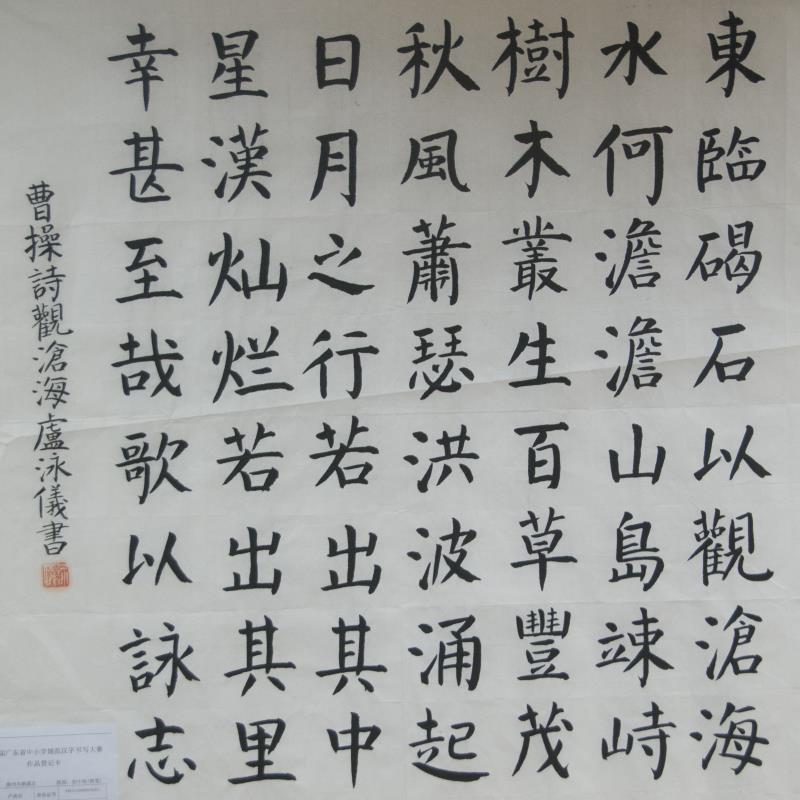 東臨碣石以觀滄海
水何澹澹山島竦峙
樹木叢生百草豐茂
秋風蕭瑟洪波涌起
日月之行若出其中
星漢灿烂若出其里
幸甚至哉歌以詠志
曹操詩觀滄海盧泳儀書
届广东省中小学规范汉字书写大赛
作品登记卡